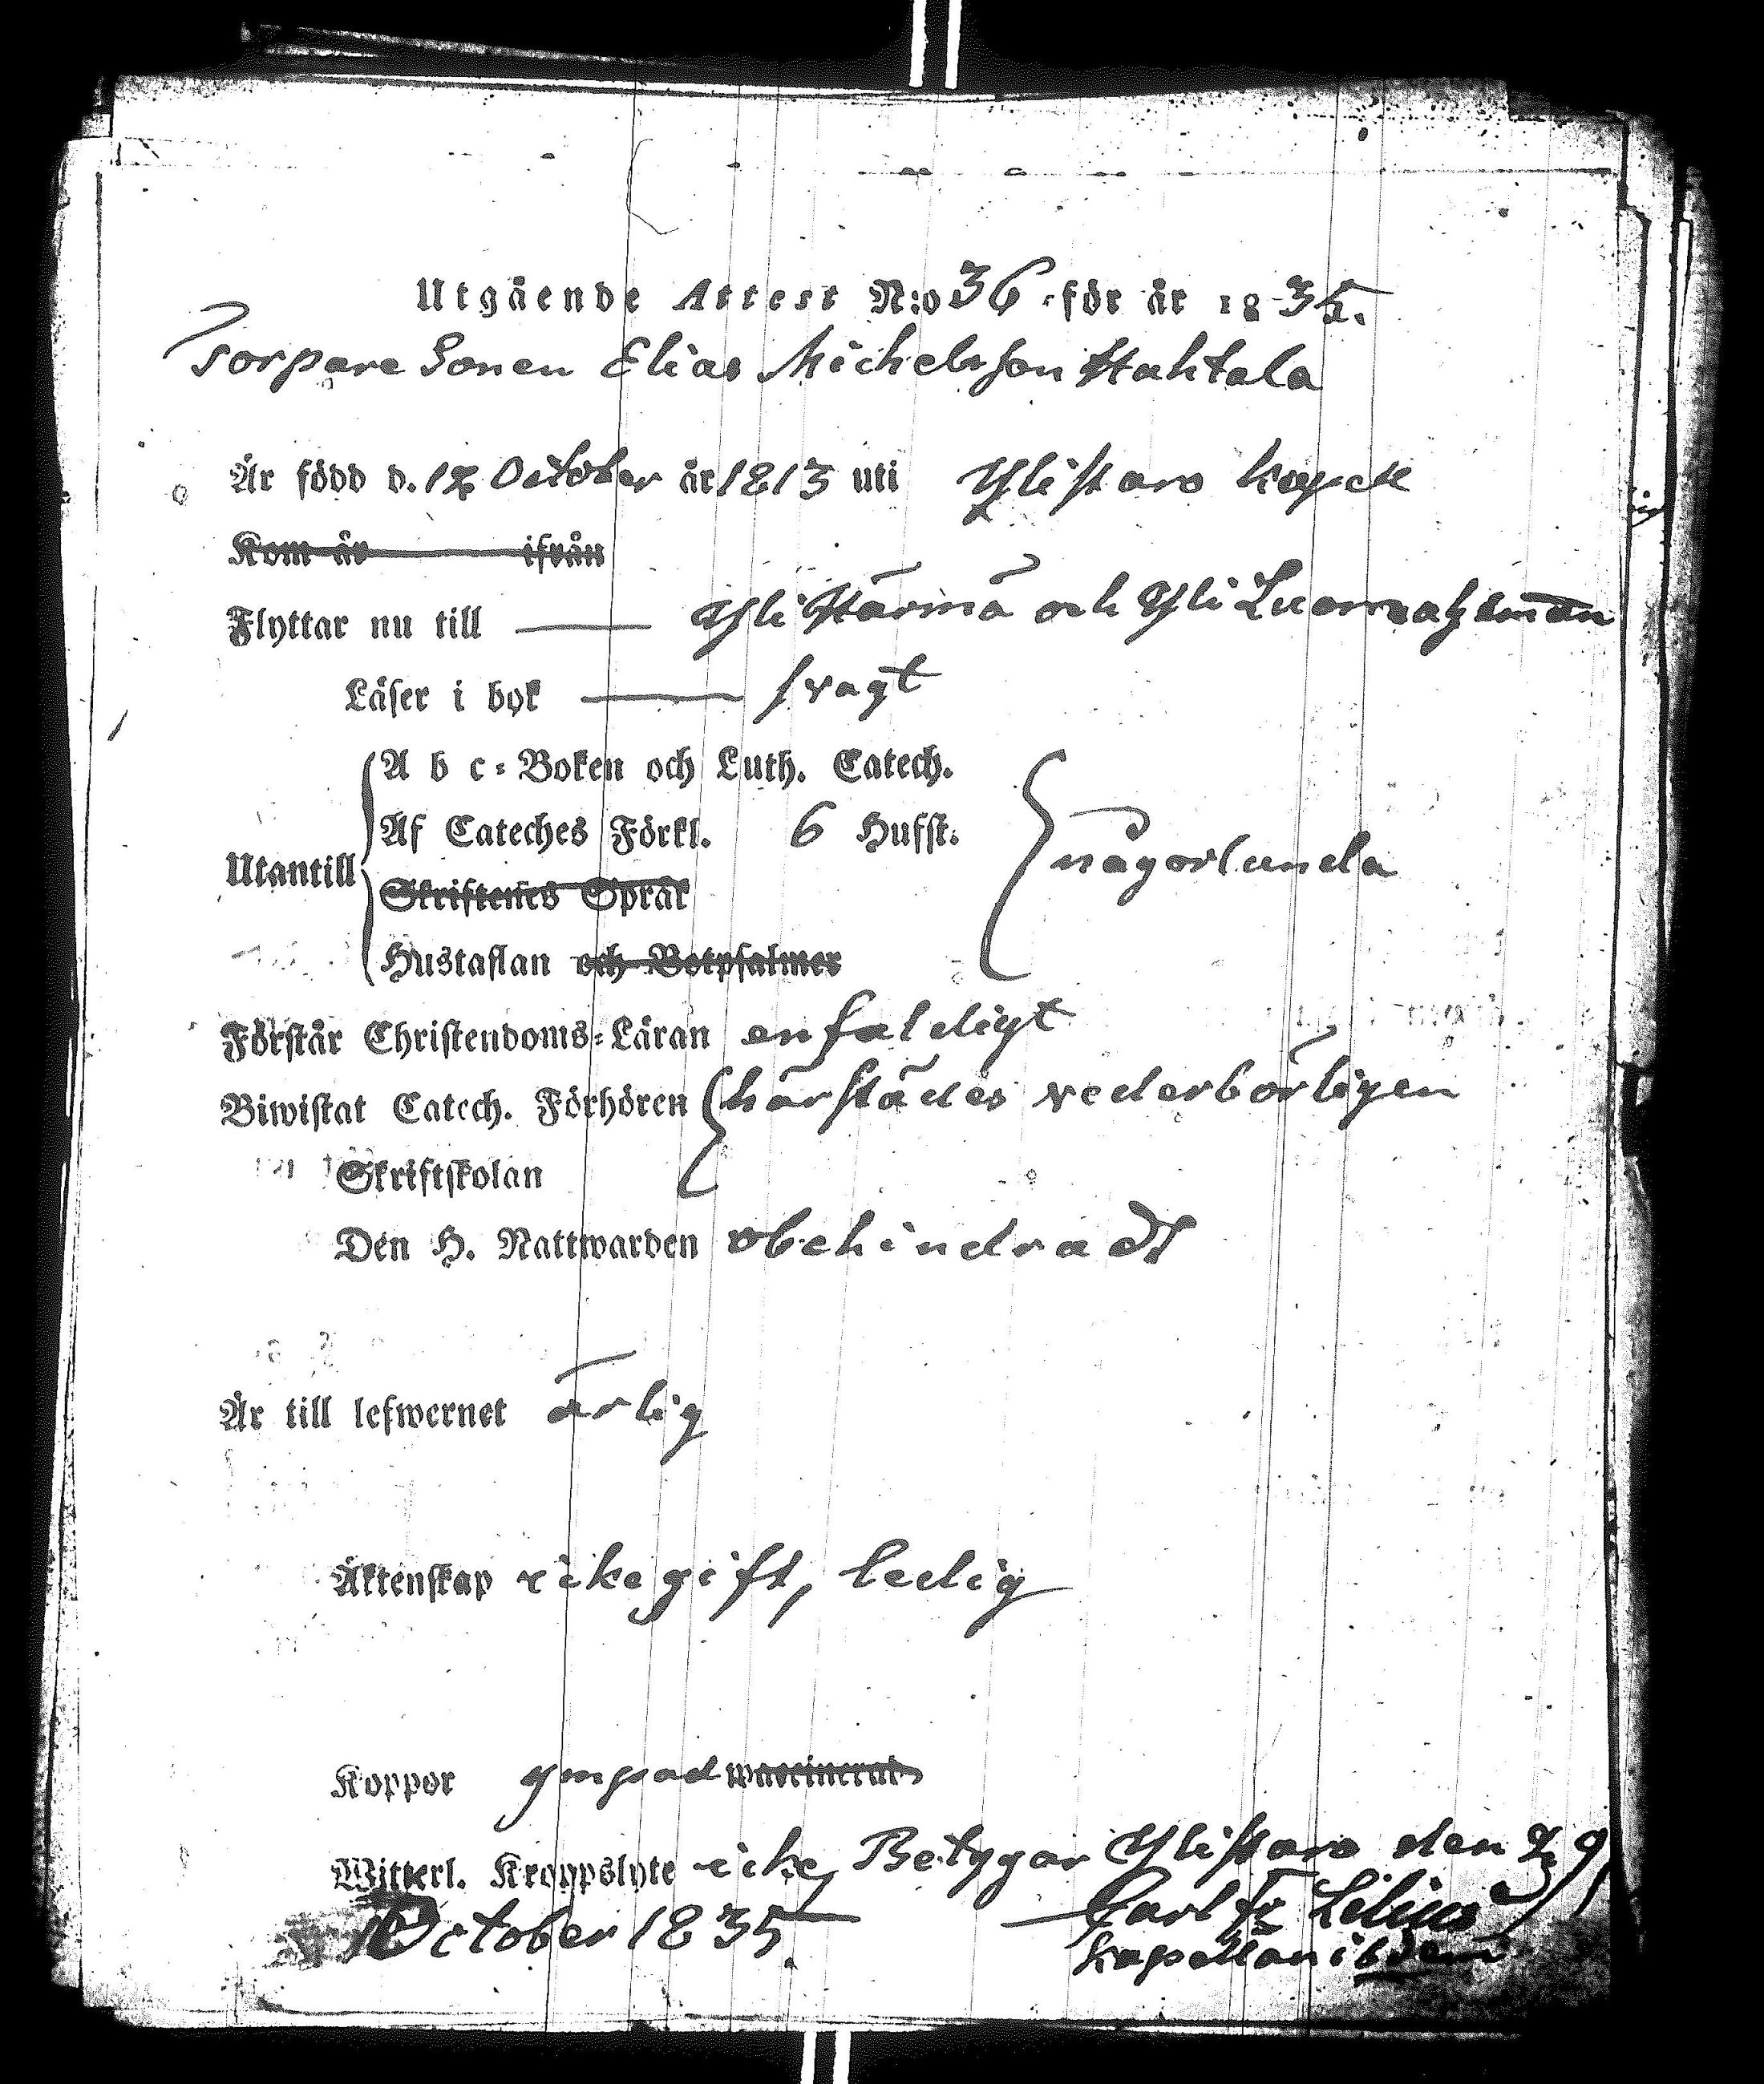 Utgående Attest N:o 36 för år 1835.
Torpare Sonen Elias Michelsson Hahtala
Är född d. 12 October år 1813 uti Ylistaro Kapell
Kom år ifrån
Flyttar nu till Yli Härmä och Yli Luoma
Läser i bok svagt
A b c-Boken och Luth. Catech.
Af Cateches Förkl. 6 Hufst.
Utantill någorlunda
Skriftenes Språk
Hustaflan och Botpsalmer
Förstår Christendoms-Läran enfaldigt
Biwistat Catech. Förhören härstädes vederbörligen
Skriftskolan
Den H. Nattwarden obehindradt
Är till lefwernet ärlig
Äktenskap icke gift, ledig
Koppor ympad waccinerad
Witterl. Kroppslyte icke, Betygar Ylistaro den 29
October 1835. Carl Fr Lilius
Kapellan ibidem